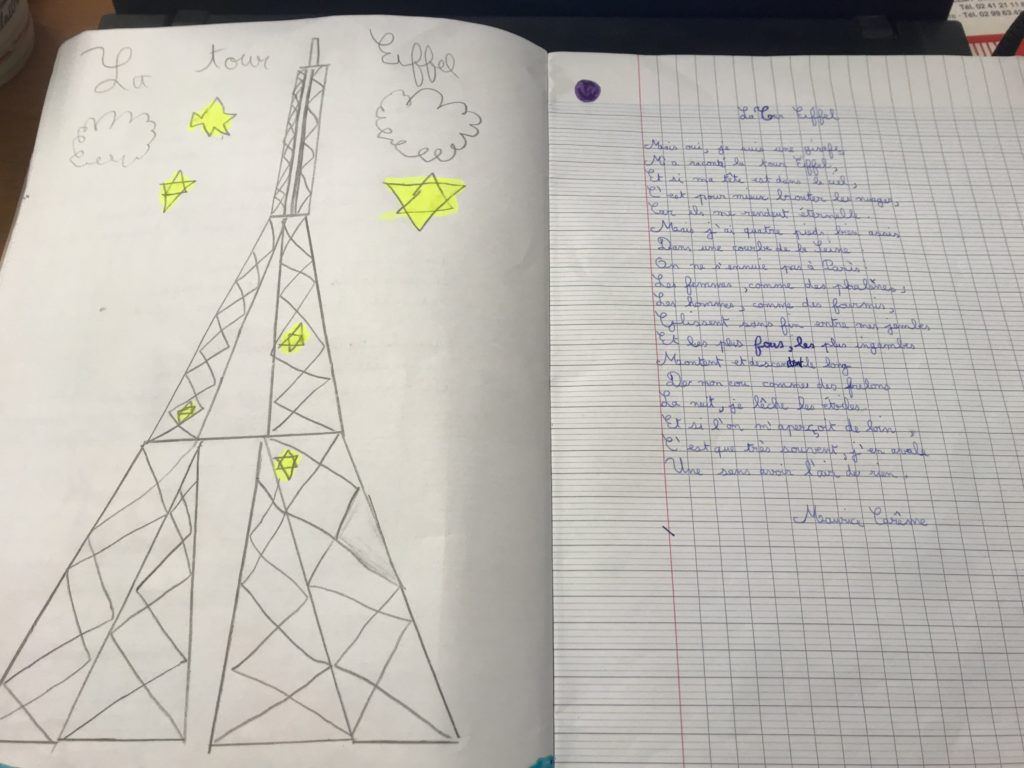 La tour Eiffel
La Tour Eiffel
Mais oui, je suis une girafe,
M'a raconté la tour Eiffel,
Et si ma tête est dans le ciel,
C'est pour mieux brouter les nuages,
Car ils me rendent éternelle.
Mais j'ai quatre pieds bien assis
Dans une courbe de la Seine
On ne s'ennuie pas à Paris
Les femmes, comme des phalènes,
Les hommes, comme des fourmis,
Glissent sans fin entre mes jambes
Et les plus fous, les plus ingambes
Montent et descendent le long
De mon cou comme des frelons
La nuit, je lèche les étoiles.
Et si l'on m'aperçoit de loin,
C'est que très souvent, j'en avale
Une sans avoir l'air de rien.
Maurice Carême
Tél. 02 41 21 11
- Tél. 02 99 63 4